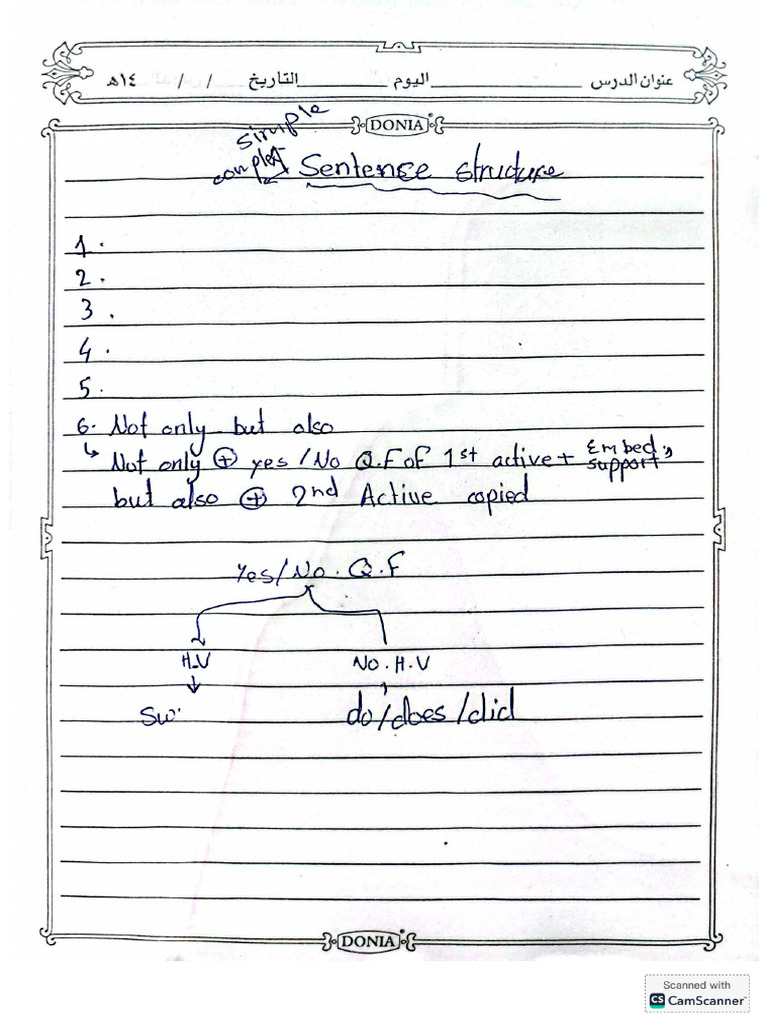 عنوان الدرس اليوم التاريخ / / ١٤هـ
DONIA
simple
complex Sentence structure
1.
2.
3.
4.
5.
6. Not only but also
↳ Not only ⊕ yes/No Q.F of 1st active + Embed,
support,
but also ⊕ 2nd Active copied
Yes/No. Q.F
H.V No. H.V
Sw. do/does/did
DONIA
Scanned with
CS CamScanner